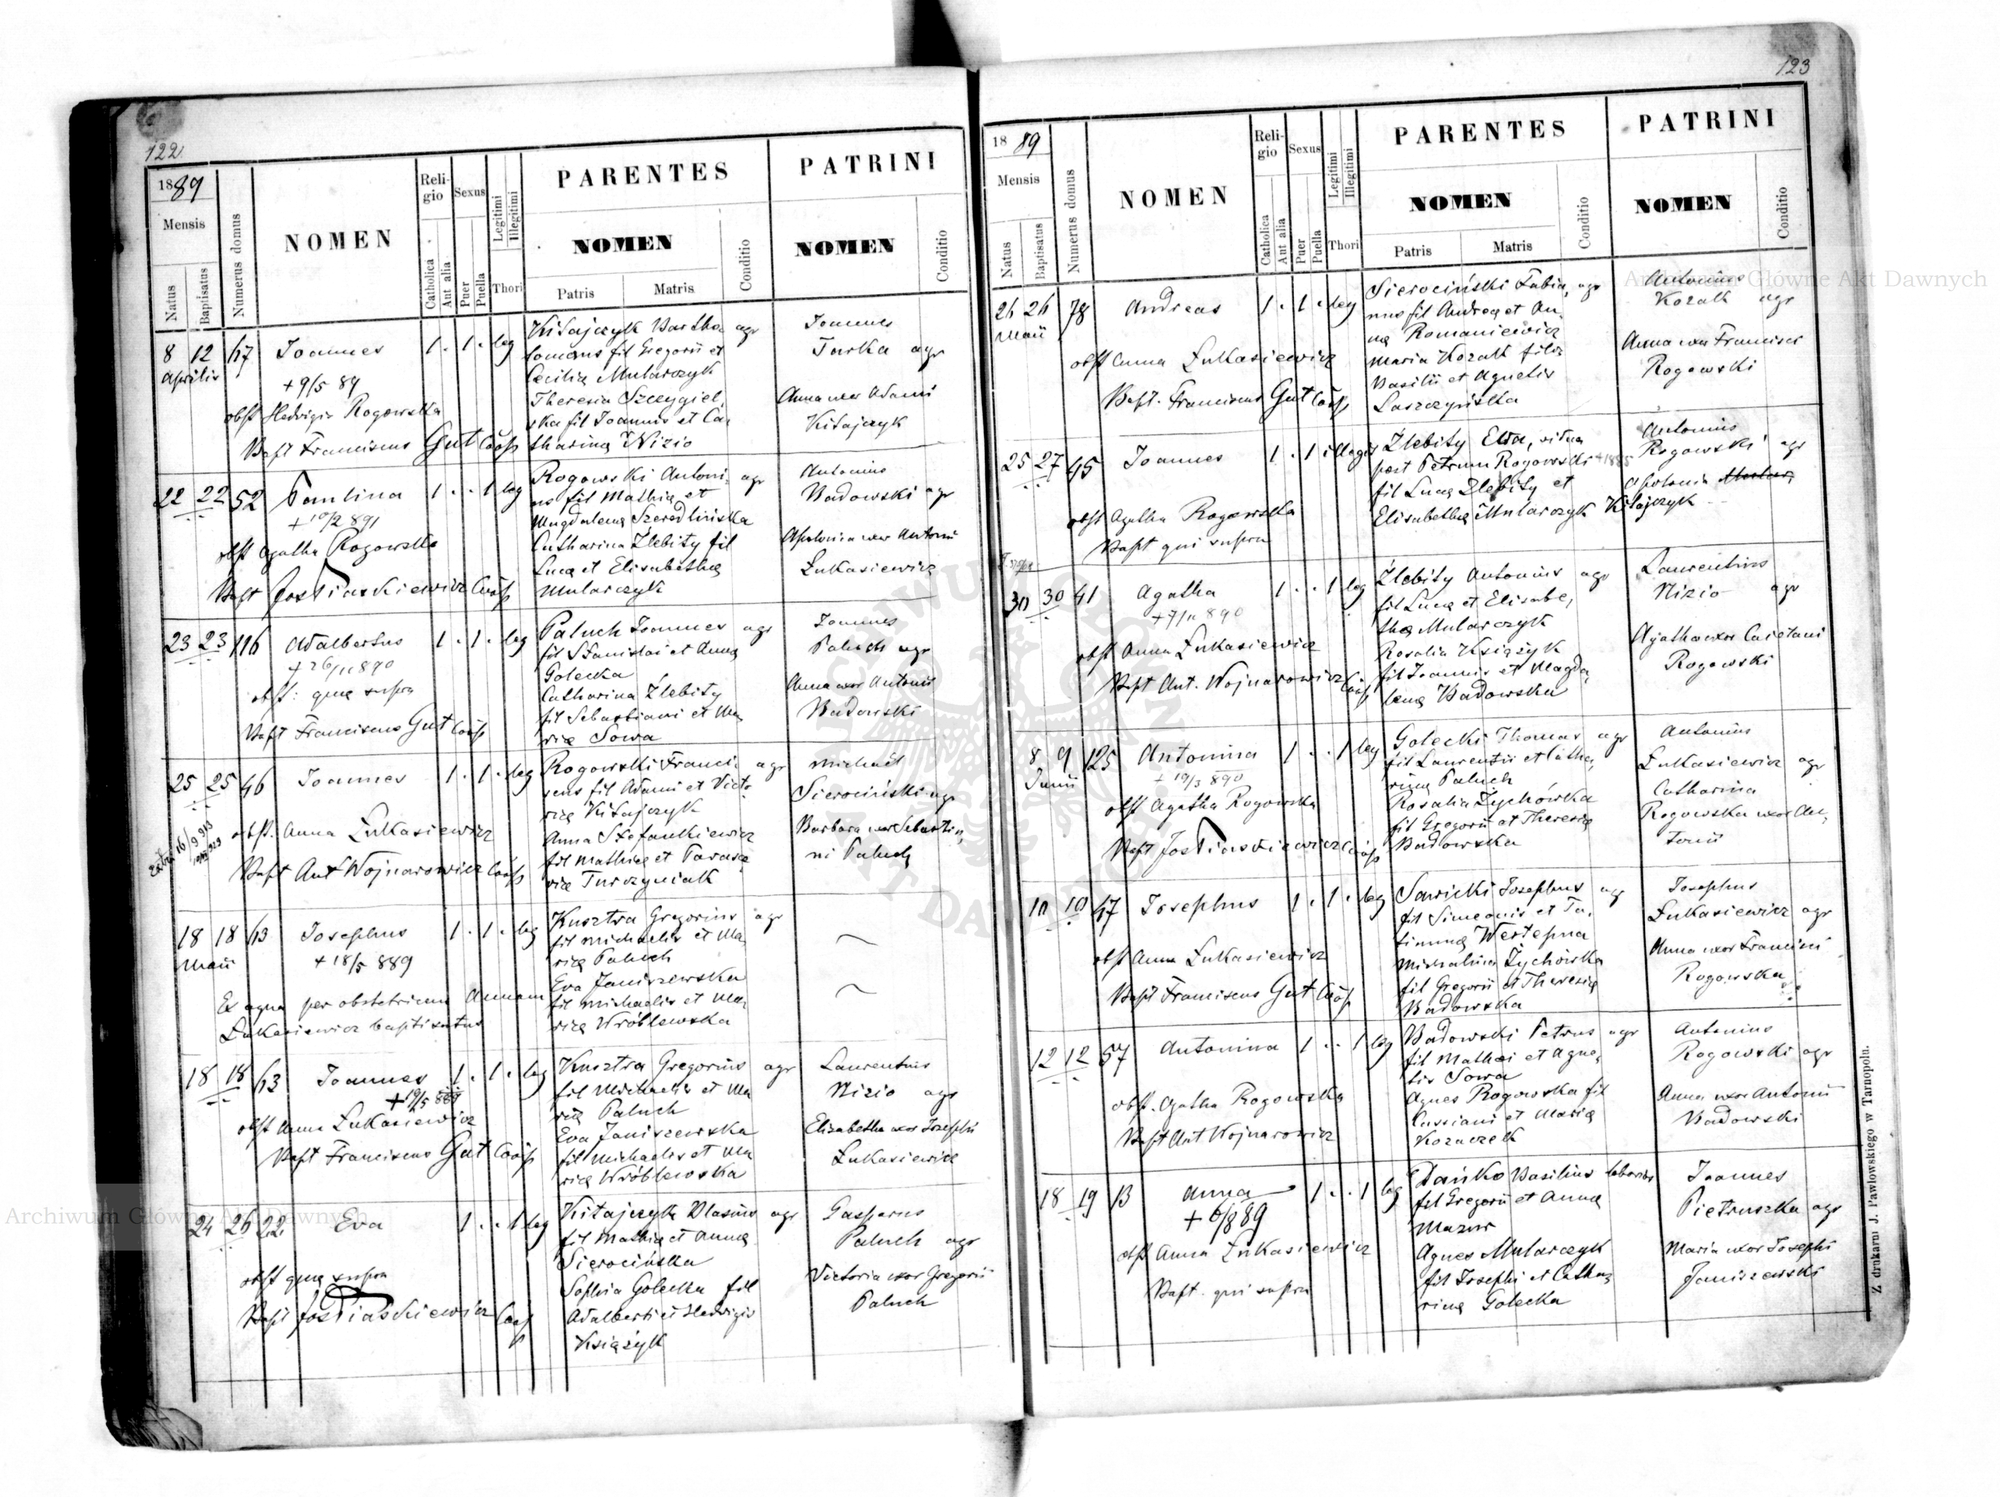 122
1889
Mensis
Natus
Baptisatus
Numerus domus
NOMEN
Religio
Catholica
Aut alia
Sexus
Puer
Puella
Legitimi
Illegitimi
Thori
PARENTES
NOMEN
Patris
Matris
Conditio
PATRINI
NOMEN
Conditio
8 12 Joannes 1 . 1 . leg
Aprilis
+ 9/5 89
obst Hedvigis Rogowska
Bapt Franciscus Gut Coop
Kitajczyk Bartho- agr
lomeus fil Gregorii et
Cecilia Mularczyk
Theresia Szczygiel-
ska fil Joannis et Ca-
tharina Nizio
Joannes
Turka agr
Anna uxor Adami
Kitajczyk
22 22 52 Paulina 1 . . 1 leg
+ 10/2 891
obst Agatha Rogowska
Bapt Coop
Rogowski Antoni- agr
us fil Mathia et
Magdalena
Catharina Żlebity fil
Luca et Elisabetha
Mularczyk
Antonius
Badowski agr
Apolonia uxor Antonii
Łukasiewicz
23 23 116 Adalbertus 1 . 1 . leg
+ 26/11 890
obst: qua supra
Bapt Franciscus Gut Coop
Paluch Joannes agr
fil Stanislai et Anna
Golecka
Catharina Żlebity
fil Sebastiani et Ma-
ria Sowa
Joannes
Paluch agr
Anna uxor Antonii
Badowski
25 25 46 Joannes 1 . 1 . leg
obst. Anna Łukasiewicz
Bapt Ant Wojnarowicz Coop
Rogowski Franci- agr
scus fil Adami et Victo-
ria Kitajczyk
Anna Stefankiewicz
fil Mathia et
Turczyniak
Michaël
Sierociński agr
Barbara uxor Sebastia-
ni Paluch
18 18 13 Josephus 1 . 1 . leg
Maii
+ 18/5 889
Ex aqua per obstetricem Annam
Łukasiewicz baptisatus
Kusztra Gregorius agr
fil Michaelis et Ma-
ria Paluch
Eva Janiszewska
fil Michaelis et Ma-
ria Wróblewska
18 18 13 Joannes 1 . 1 . leg
+ 19/5 889
obst Anna Łukasiewicz
Bapt Franciscus Gut Coop
Kusztra Gregorius agr
fil Michaelis et Ma-
ria Paluch
Eva Janiszewska
fil Michaelis et Ma
ria Wróblewska
Laurentius
Nizio agr
Elisabetha uxor Josephi
Łukasiewicz
24 26 22 Eva 1 . . 1 leg
obst qua supra
Bapt Coop
Kitajczyk Blasius agr
fil Mathia et Anna
Sierocińska
Sophia Golecka fil
Adalberti et Hedvigis
Książyk
Gasparus
Paluch agr
Victoria uxor Gregorii
Paluch
123
1889
Mensis
Natus
Baptisatus
Numerus domus
NOMEN
Religio
Catholica
Aut alia
Sexus
Puer
Puella
Legitimi
Illegitimi
Thori
PARENTES
NOMEN
Patris
Matris
Conditio
PATRINI
NOMEN
Conditio
26 26 78 Andreas 1 . 1 . leg
Maii
obst Anna Łukasiewicz
Bapt. Franciscus Gut Coop
Sierociński Fabia- agr
nus fil Andrea et An-
na Romaniewicz
Maria Kozak filia
Basilii et Agnetis
Laszczyńska
Antonius
Kozak agr
Anna uxor Francisci
Rogowski
25 27 45 Joannes 1 . 1 illeg
obst Agatha Rogowska
Bapt qui supra
Żlebity Eva, vidua
post Petrum Rogowski + 1885
fil Luca Żlebity et
Elisabetha Mularczyk
Antonius
Rogowski agr
Apolonia
Kitajczyk
30 30 41 Agatha 1 . . 1 leg
+ 7/11 890
obst Anna Łukasiewicz
Bapt Ant. Wojnarowicz Coop
Żlebity Antonius agr
fil Luca et Elisabe-
tha Mularczyk
Rosalia Książyk
fil Joannis et Magda-
lena Badowska
Laurentius
Nizio agr
Agatha uxor Caietani
Rogowski
8 9 125 Antonina 1 . . 1 leg
Junii
+ 19/3 890
obst Agatha Rogowska
Bapt Coop
Golecki Thomas agr
fil Laurentii et Catha-
rina Paluch
Rosalia Żychówka
fil Gregorii et Theresia
Badowska
Antonius
Łukasiewicz agr
Catharina
Rogowska uxor An-
tonii
10 10 47 Josephus 1 . 1 . leg
obst Anna Łukasiewicz
Bapt Franciscus Gut Coop
Sawicki Josephus agr
fil Simeonis et
Westepna
Michalina Żychówka
fil Gregorii et Theresia
Badowska
Josephus
Łukasiewicz agr
Anna uxor Francisci
Rogowska
12 12 57 Antonina 1 . . 1 leg
obst. Agatha Rogowska
Bapt Ant Wojnarowicz
Badowski Petrus agr
fil Mathei et Agne-
tis Sowa
Agnes Rogowska fil
Cassiani et Maria
Kozaczek
Antonius
Rogowski agr
Anna uxor Antonii
Badowski
18 19 13 Anna 1 . . 1 leg
+ 6/8 89
obst Anna Łukasiewicz
Bapt. qui supra
Dańko Basilius
fil Gregorii et Anna
Mazur
Agnes Mularczyk
fil Josephi et Catha-
rina Golecka
Joannes
Pietruszka agr
Maria uxor Josephi
Janiszewski
Z drukarni J. Pawłowskiego w Tarnopolu.
Archiwum Główne Akt Dawnych
Archiwum Główne Akt Dawnych
ARCHIWUM GŁÓWNE AKT DAWNYCH